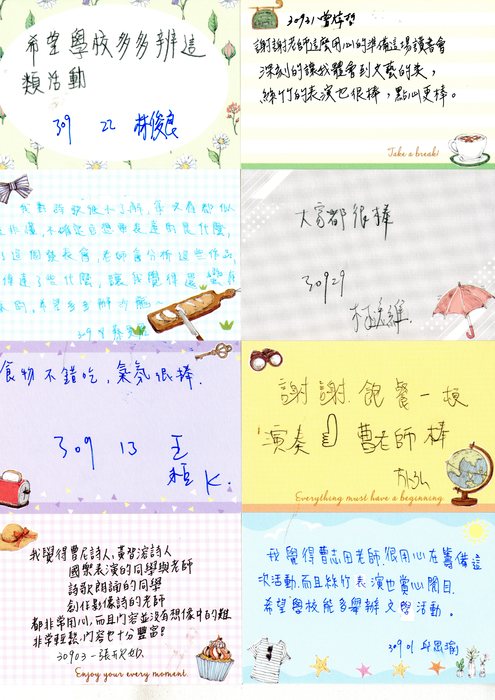 希望學校多多辦這
類活動
309 22 林俊良
30921 
謝謝老師這麼用心的準備這場讀書會
深刻的讓我體會到文藝的美,
絲竹的表演也很棒,點心更棒。
Take a break!
我對詩歌很不了解,
老師會分析這些作品,
讓我覺得還
希望多多辦
309
大家都很棒
30929
食物不錯吃,氣氛很棒.
309 13 王
K.
謝謝.飽餐一頓
演奏 曹老師棒
Everything must have a beginning.
我覺得曹尼詩人,黃習溶詩人
國樂表演的同學與老師
詩歌朗誦的同學
創作影像詩的老師
都非常用心,而且內容並沒有想像中的難
非常輕鬆,內容也十分豐富!
30903-張
Enjoy your every moment.
我覺得曹志田老師.很用心在籌備這
次活動.而且絲竹表演也賞心閱目.
希望學校能多舉辦文學活動。
30901 邱思瑜